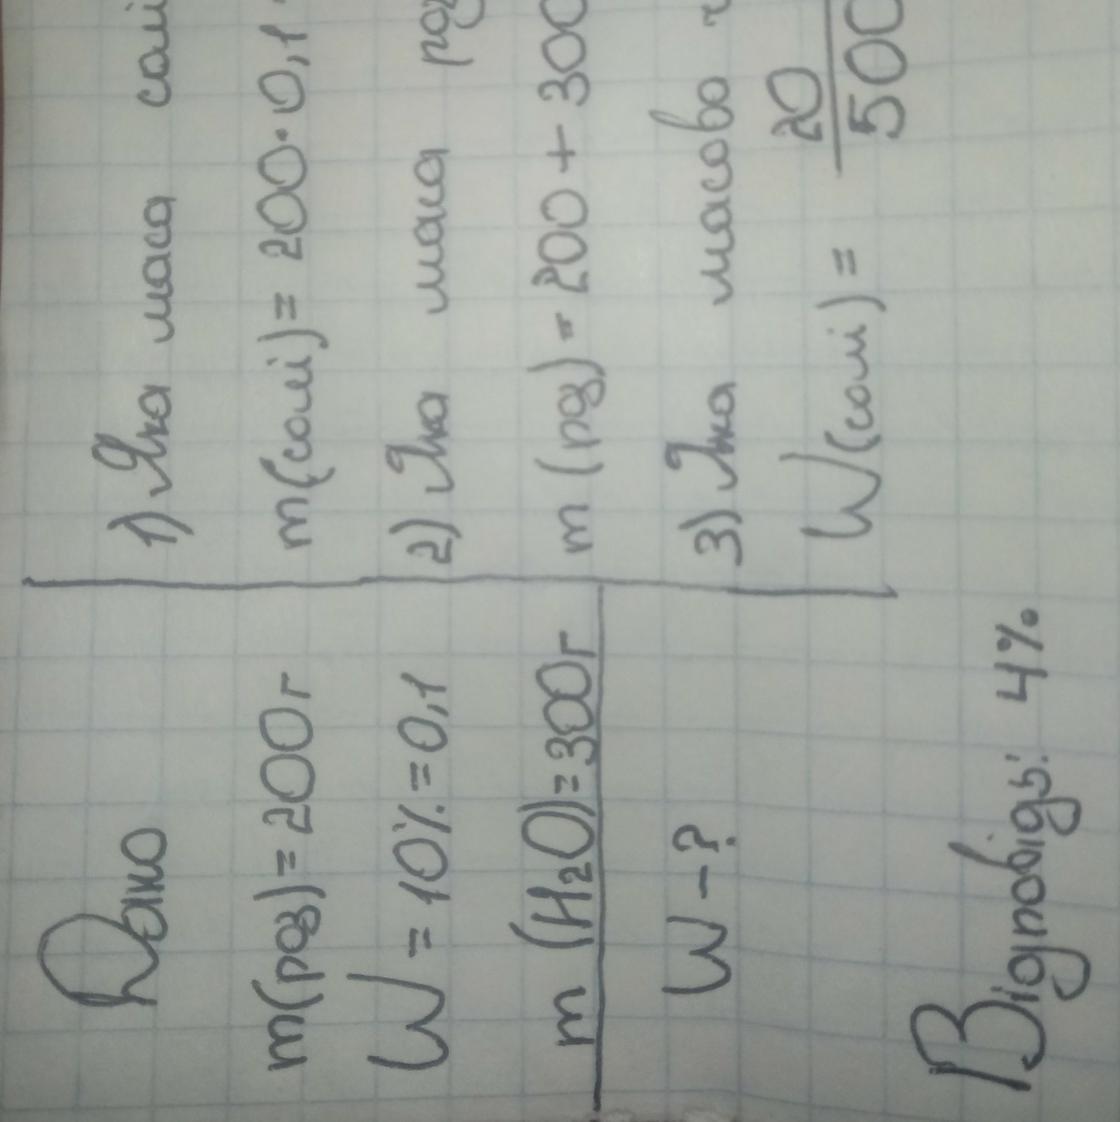 Дано
m(роз)=200г
W=10%=0,1
m(H₂O)=300г
W-?
1) Яка маса солі
m(солі)=200·0,1
2) Яка маса роз
m(роз)=200+300
3) Яка масова
W(солі)= 20/500
Відповідь: 4%